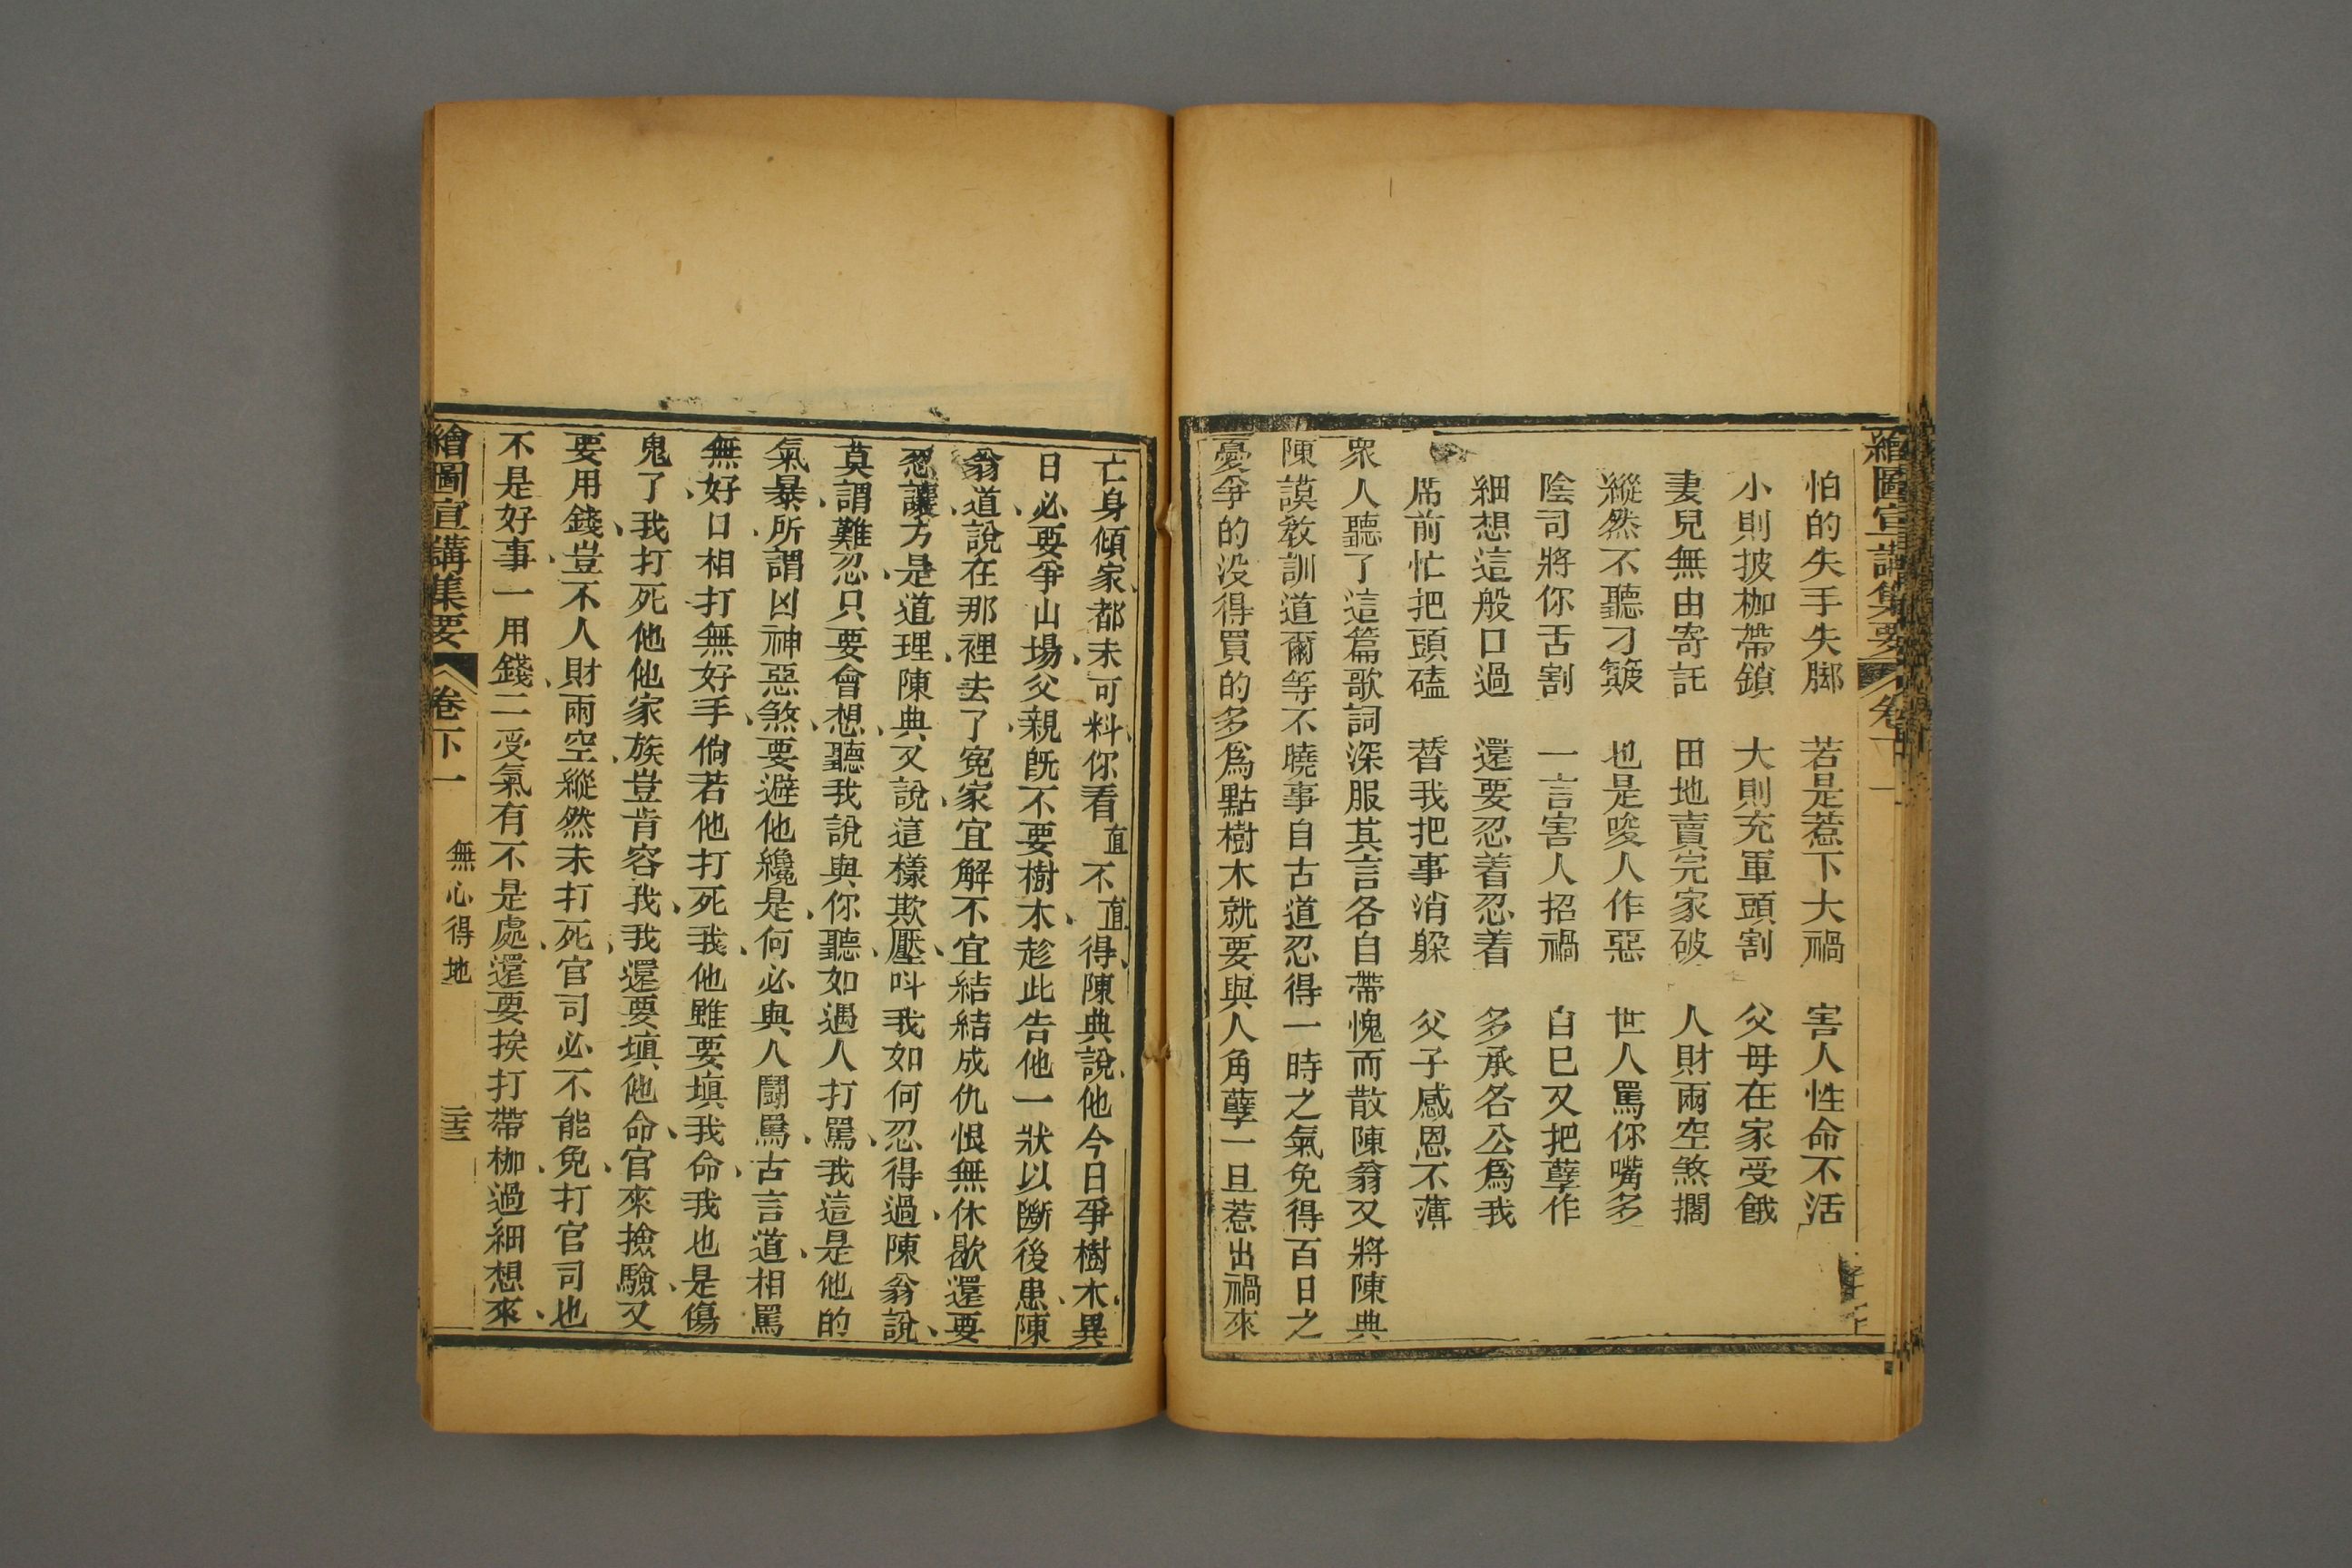 繪圖宣講集要 卷下一
怕的失手失脚 若是惹下大禍 害人性命不活
小則披枷帶鎖 大則充軍頭割 父母在家受餓
妻兒無由寄託 田地賣完家破 人財兩空煞擱
縱然不聽刁簸 也是唆人作惡 世人罵你嘴多
陰司將你舌割 一言害人招禍 自已又把孽作
細想這般口過 還要忍着忍着 多承各公爲我
席前忙把頭磕 替我把事消躲 父子感恩不薄
衆人聽了這篇歌詞深服其言各自帶愧而散陳翁又將陳典
陳謨敎訓道爾等不曉事自古道忍得一時之氣免得百日之
憂爭的没得買的多爲點樹木就要與人角孽一旦惹出禍來
亡身傾家都未可料你看直不直得陳典說他今日爭樹木異
日必要爭山場父親既不要樹木趁此告他一狀以斷後患陳
翁道說在那裡去了寃家宜解不宜結結成仇恨無休歇還要
忍讓方是道理陳典又說這樣欺壓呌我如何忍得過陳翁說
莫謂難忍只要會想聽我說與你聽如遇人打罵我這是他的
氣暴所謂凶神惡煞要避他纔是何必與人鬪罵古言道相罵
無好口相打無好手倘若他打死我他雖要塡我命我也是傷
鬼了我打死他他家族豈肯容我我還要塡他命官來撿驗又
要用錢豈不人財兩空縱然未打死官司必不能免打官司也
不是好事一用錢二受氣有不是處還要挨打帶枷過細想來
繪圖宣講集要 卷下一 無心得地 三十三